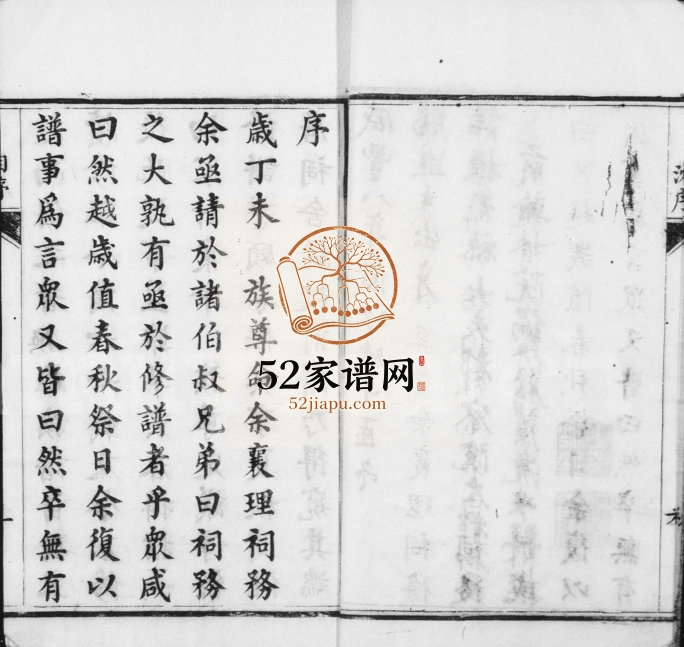 序
歲丁未　族尊命余襄理祠務
余亟請於諸伯叔兄弟曰祠務
之大孰有亟於修譜者乎眾咸
曰然越歲值春秋祭日余復以
譜事為言眾又皆曰然卒無有
一
52家谱网
52jiapu.com